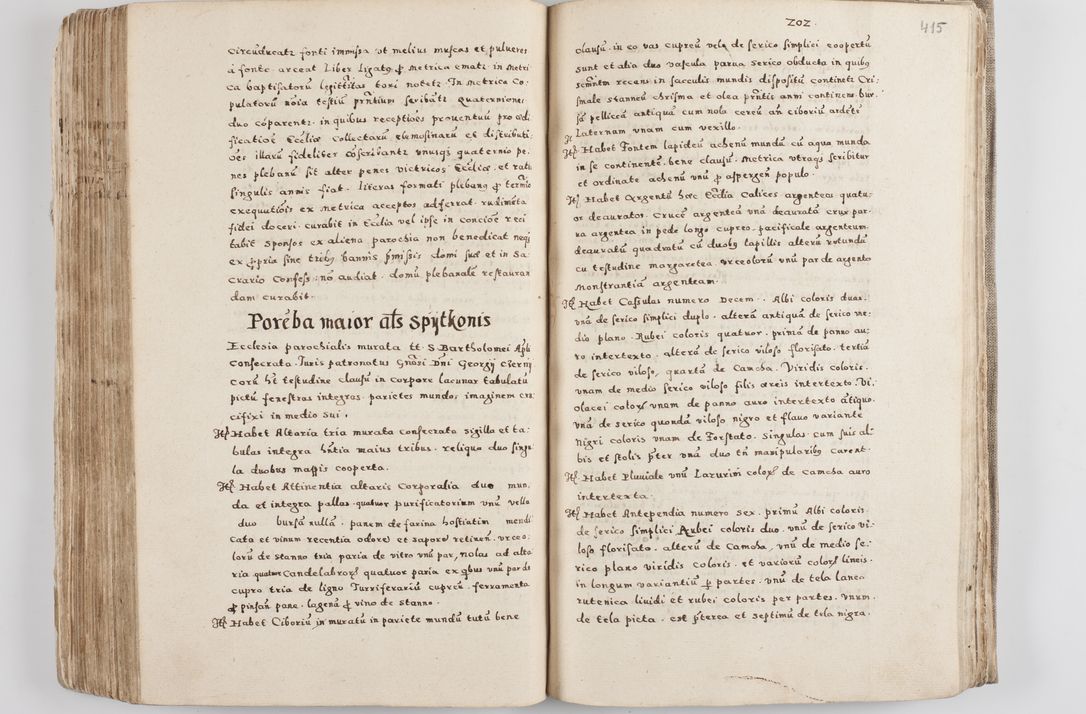 circũducatz fonti immissa ut melius muscas et pulueres
à fonte arceat Liber Ligatꝰ ꝓ Metrica ematz in Metri
ca baptisatorũ legittimitas tori notetz In Metrica Co
pulatorũ nõia testiũ p̃ntium scribãtz Quaterniones
duo cõparentz in quibus receptiões prouentuũ pro ædi
ficatiõe Ecclĩæ collectarũ elemosinarũ et distributi
ões illarũ fideliter cõscribantz unusq; quaternio pe
nes plebanũ sit alter penes victricos Ecclĩæ et ratio
singulis annis fiat. literas formati plebanꝰ ꝓ termĩo
exequutiõis ex metrica acceptos adferrat rudimẽta
fidei doceri curabit in Ecclĩa vel ipse in conciõe reci
tabit sponsos ex aliena parochia non benedicat neq;
ex ꝓpria sine tribꝰ bannis p̃missis domi suæ et in Sa
crario Confess: nõ audiat domũ plebanalẽ restauran
dam curabit.
Porẽba maior als̃ Spijtkonis
Ecclesia parochialis murata tt S. Bartholomei Apl̃i
consecrata. Juris patronatus Gñosi Dñi Georgij Czerni
corũ hẽt testudine clausũ in corpore lacunar tabulatũ
pictũ fenestras integras parietes mundos imaginem cru
cifixi in medio sui.
Itẽ Habet Altaria tria murata consecrata sigillo et ta:
bulas integra hñtia maius tribus reliqua duo singu
la duobus mappis cooperta.
Itẽ Habet Attinentia altaris Corporalia duo mun.
da et integra pallas quatuor purificatorium unũ vella
duo bursã nullã panem de farina hostiatim mendi
cata et vinum recentia odore et sapore retinen. urceo:
lorũ de stanno tria paria de vitro unũ par, nolas ad alta
ria quatuor Candelabrorũ quatuor paria ex qbus unũ par de
cupro tria de ligno Turriferariũ cupreũ ferramenta
ꝓ pinsañ pane. lagenã ꝓ vino de stanno.
Itẽ Habet Ciboriũ in muratũ in pariete mundũ tutũ bene
202.
415
clausũ in eo vas cupreũ velo de serico simplici coopertũ
sunt et alia duo vascula parua serico obducta in quibꝰ
sacr̃mtm recens in sacculis mundis dispositũ continetz Cri
smale stanneũ chrisma et olea p̃ntis anni continens bur.
sã pelliceã antiquã cum nola cereũ añ ciboriũ ardẽtẽ
Laternam vnam cum vexillo.
Itẽ Habet Fontem lapideũ achenũ mundũ cũ aqua munda
in se continentẽ bene clausũ. Metrica utraq; scribitur
et ordinate achenũ unũ ꝓ aspergeñ populo.
Itẽ Habet Argentũ hæc Ecclĩa Calices argenteos quatu:
or deauratos. Crucẽ argenteã vnã deauratã crux par:
ua argentea in pede longo cupreo. pacificale argenteum
deauratũ quadratũ cũ duobꝰ lapillis alterũ rotundũ
cũ testudine margaretea urceolorũ unũ par de argento
Monstrantiã argenteam.
Itẽ Habet Casulas numero Decem. Albi coloris duas
vnã de serico simplici duplo. alterã antiquã de serico me:
dio plano. Rubei coloris quatuor. primã de panno au:
ro intertexto. alterã de serico viloso florisato. tertiã
de serico viloso, quartã de Camcha. Viridis coloris.
vnam de medio serico viloso filis æreis intertexto. Vi.
olacei colorꝭ vnam de panno auro intertexto ãtiquo.
vnã de serico quondã viloso nigro et flauo variante
Nigri coloris vnam de Forstato. Singulas cum suis al:
bis et stolis p̃ter vnã duo tñ manipularibꝰ carent.
Itẽ Habet Pluuiale vnũ Lazurini colorꝭ de camcha auro
intertexta.
Itẽ Habet Antependia numero sex. primũ Albi coloris
de serico simplici Rubei coloris duo. vnũ de serico vi:
loso florisato. alterũ de Camcha, vnũ de medio se:
rico plano viridis coloris. et variorũ colorꝭ lineis.
in longum variantiũ ꝑ partes. vnũ de tela lanea
rutenica liuidi et rubei coloris per partes. vnum.
de tela picta. est p̃terea et septimũ de tela nigra.